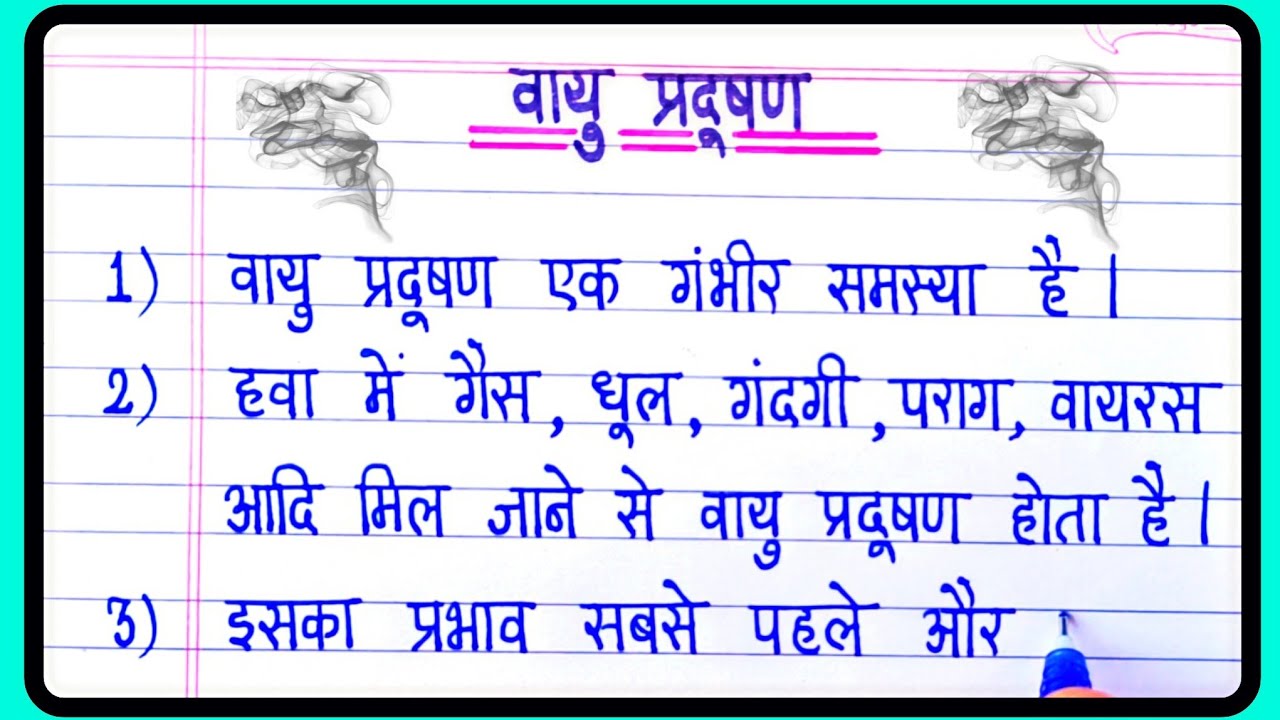 वायु प्रदूषण
1) वायु प्रदूषण एक गंभीर समस्या है।
2) हवा में गैस, धूल, गंदगी, पराग, वायरस
आदि मिल जाने से वायु प्रदूषण होता है।
3) इसका प्रभाव सबसे पहले और